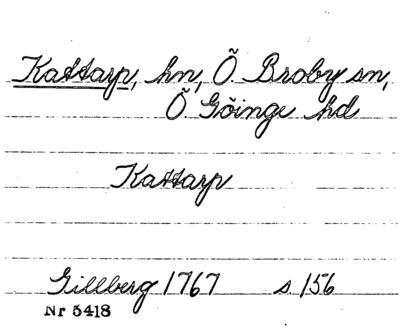 Kattarp, hn, Ö. Broby sn,
Ö. Göinge hd
Kattarp
Gillberg 1767 s. 156
Nr 5418